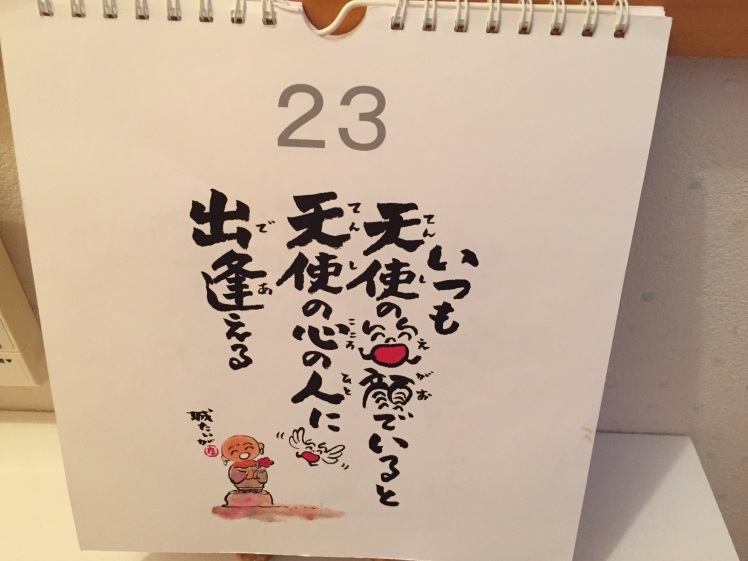 23
いつも
天使の笑顔でいると
天使の心の人に
出逢える
城たいが